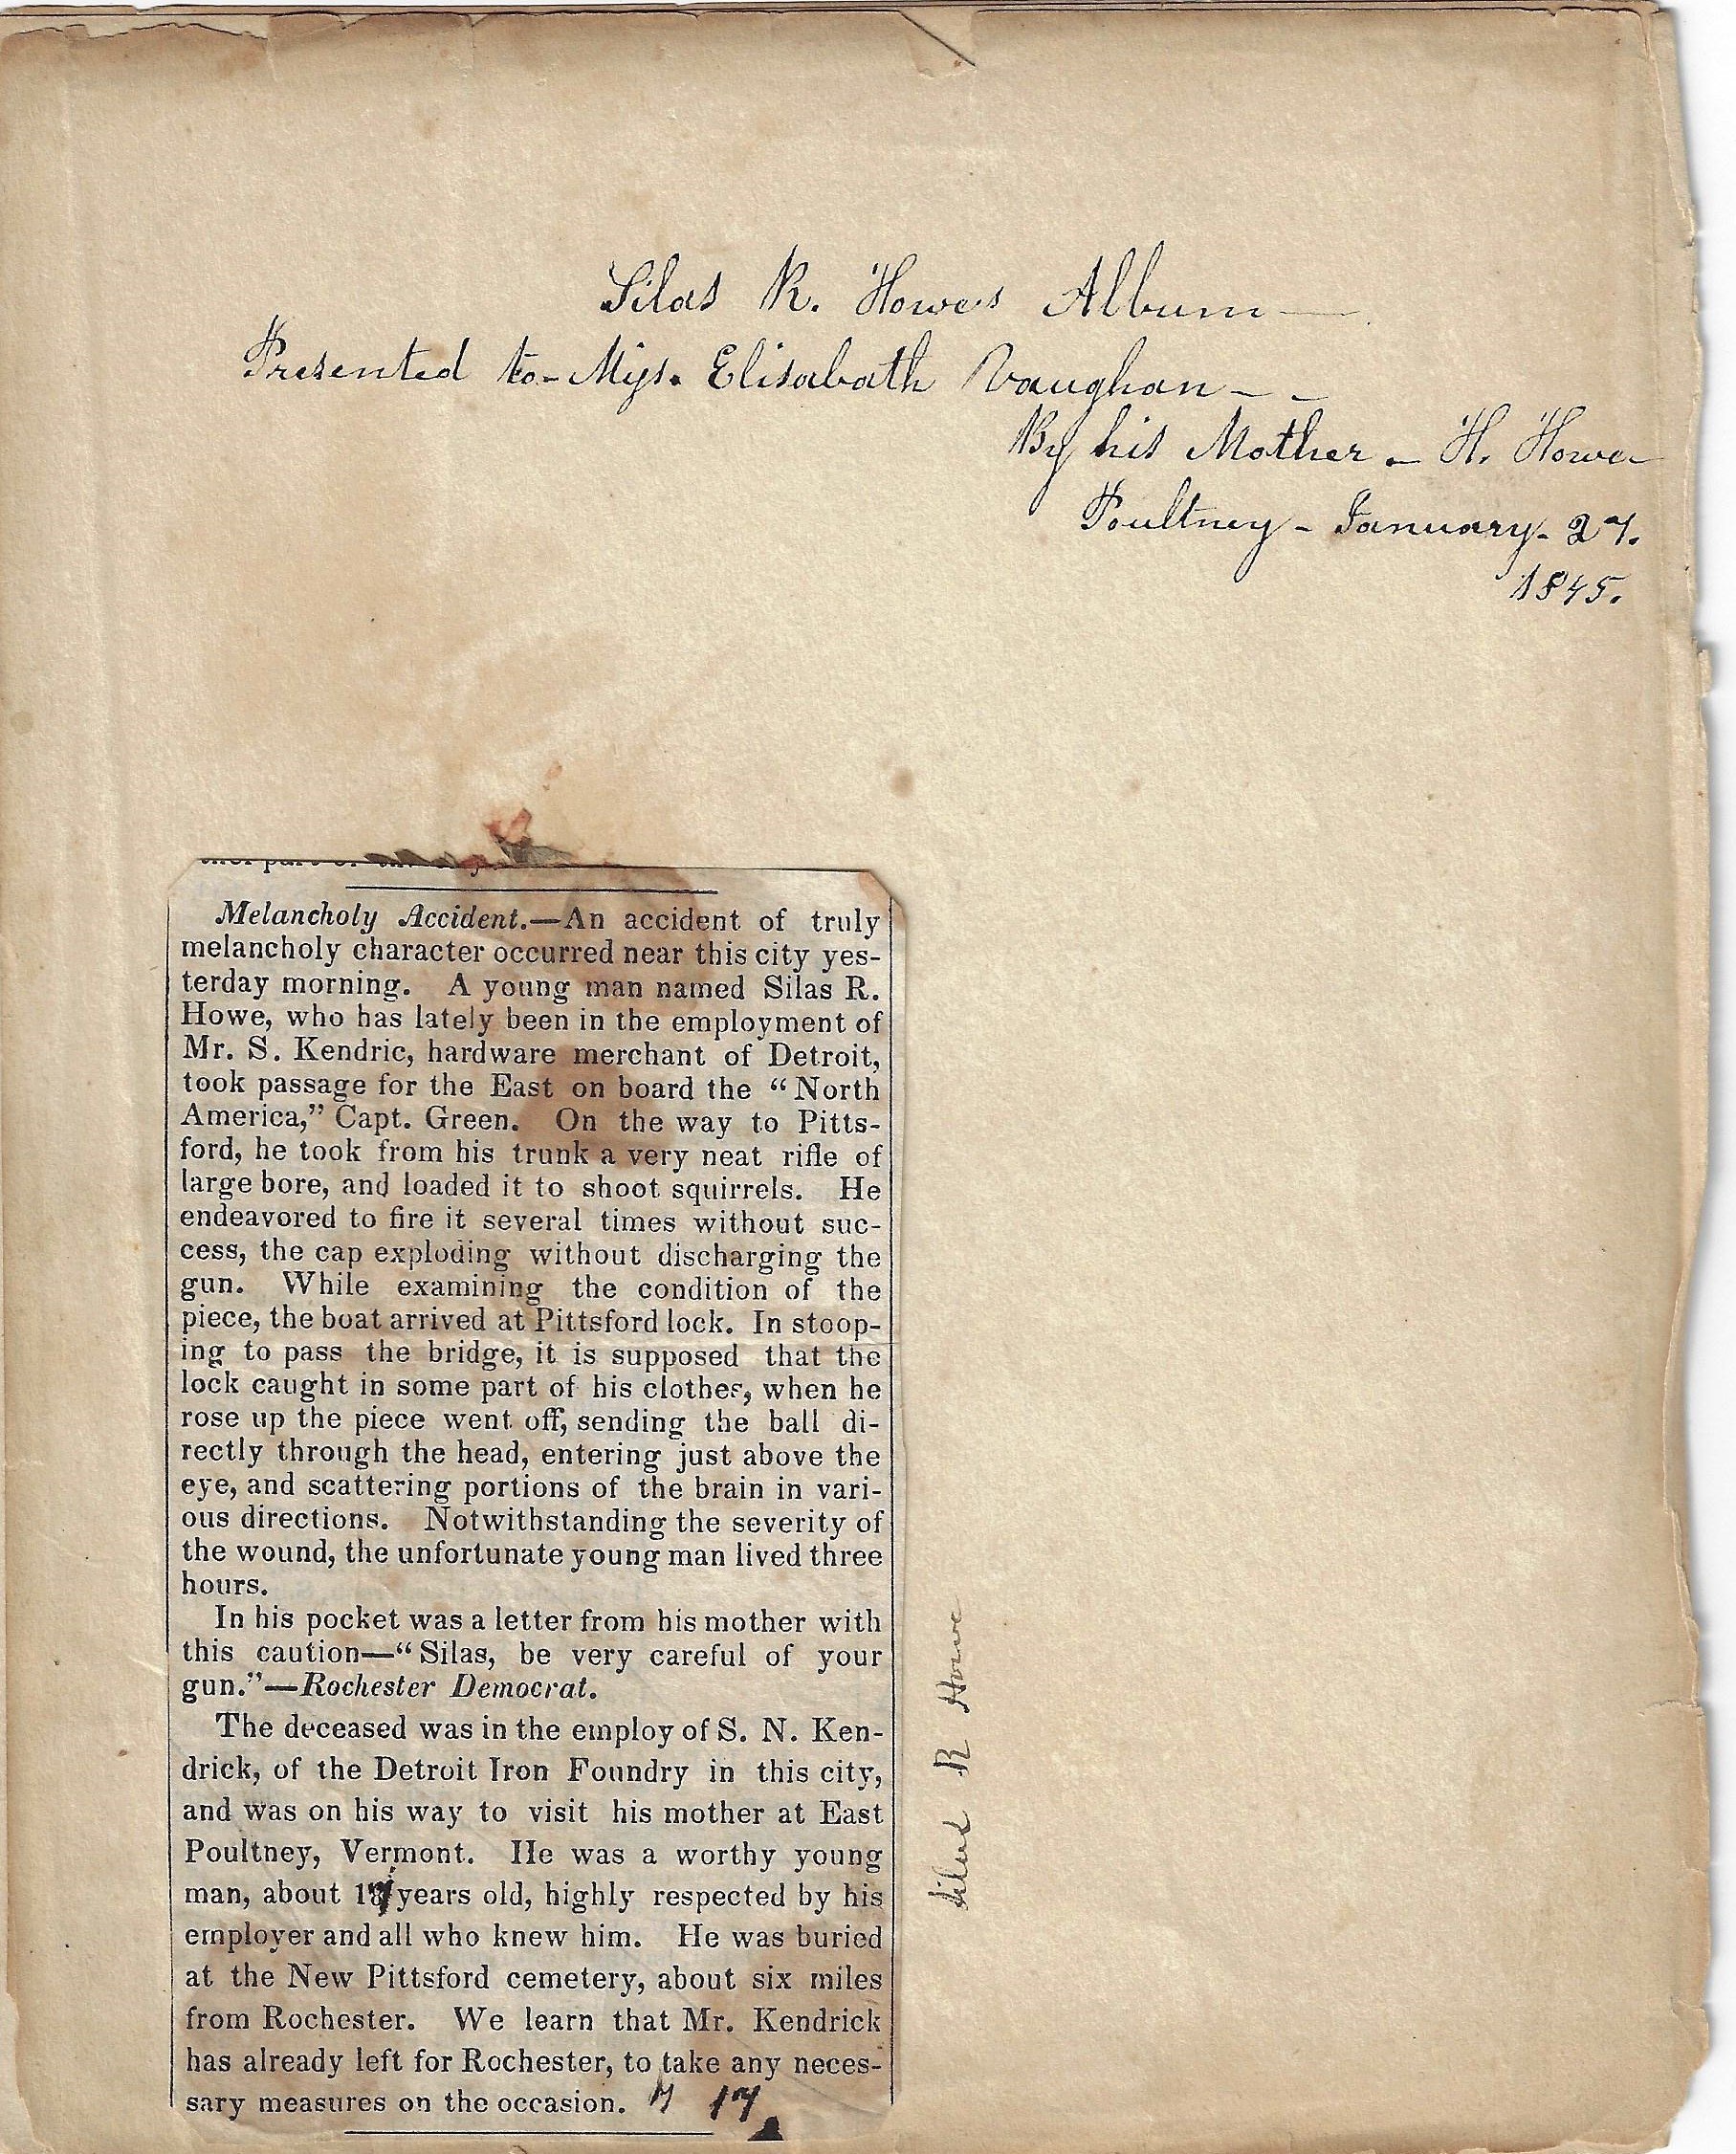 Silas R. Howes Album —
Presented to - Miss. Elisabath Vaughan - -
By his Mother - H. Howe
Poultney - January - 27.
1845.
Melancholy Accident.—An accident of truly
melancholy character occurred near this city yes-
terday morning. A young man named Silas R.
Howe, who has lately been in the employment of
Mr. S. Kendric, hardware merchant of Detroit,
took passage for the East on board the “North
America,” Capt. Green. On the way to Pitts-
ford, he took from his trunk a very neat rifle of
large bore, and loaded it to shoot squirrels. He
endeavored to fire it several times without suc-
cess, the cap exploding without discharging the
gun. While examining the condition of the
piece, the boat arrived at Pittsford lock. In stoop-
ing to pass the bridge, it is supposed that the
lock caught in some part of his clothes, when he
rose up the piece went off, sending the ball di-
rectly through the head, entering just above the
eye, and scattering portions of the brain in vari-
ous directions. Notwithstanding the severity of
the wound, the unfortunate young man lived three
hours.
In his pocket was a letter from his mother with
this caution—“Silas, be very careful of your
gun.”—Rochester Democrat.
The deceased was in the employ of S. N. Ken-
drick, of the Detroit Iron Foundry in this city,
and was on his way to visit his mother at East
Poultney, Vermont. He was a worthy young
man, about years old, highly respected by his
employer and all who knew him. He was buried
at the New Pittsford cemetery, about six miles
from Rochester. We learn that Mr. Kendrick
has already left for Rochester, to take any neces-
sary measures on the occasion. 17
Silas R Howe